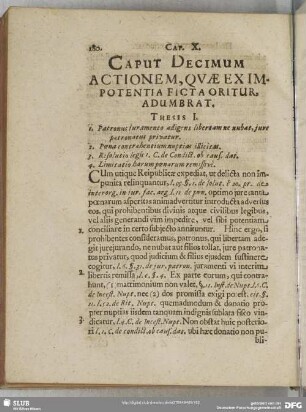 180. CAP. X.
CAPUT DECIMUM
ACTIONEM, QVÆ EX IM-
POTENTIA FICTA ORITUR,
ADUMBRAT.
THESIS I.
1. Patronus juramento adigens libertam ne nubat, jure
patronatus privatur.
2. Pœna contrahentium nuptias illicitas.
3. Resolutio leg. 1. C. de Condict. ob caus. dat.
4. Limitatio harum pœnarum remissivè.
CUm utique Reipublicæ expediat, ut delicta non im-
punita relinquantur,
interrog. in jur. fac. arg. de pœn. optimo jure tanta
pœnarum asperitas animadvertitur introducta adversus
eos, qui prohibentibus divinis æque civilibus legibus,
vel aliis generandi vim impedire, vel sibi potentiam
2 conciliare in certo subjecto annituntur. Hinc ergo, si
prohibentes consideramus, patronus, qui libertam adi-
git jurejurando, ne nubat aut filios tollat, jure patrona-
tus privatur, quod judicium de filiis ejusdem sustinere
cogitur, l. 6. §. de jur. patron. patronenti vi interim
libertis remissâ l. 6. §. 4. Ex parte eorum, qui contra-
hunt, (1) matrimonium non valet, §. 12. Inst. de Nupt. l. 4. C.
de Incest. Nupt. nec (2) dos promissa exigi potest,
de Rit. Nupt. quemadmodum & donatio pro-
pter nuptias iisdem tanquam indignis sublata fisco vin-
3 dicatur, l. 4. C. de Incest. Nupt. Non obstat huic posterio-
ri l. 1. C. de condict. ob caus. dat. ubi hæc donatio non pu-
bli-